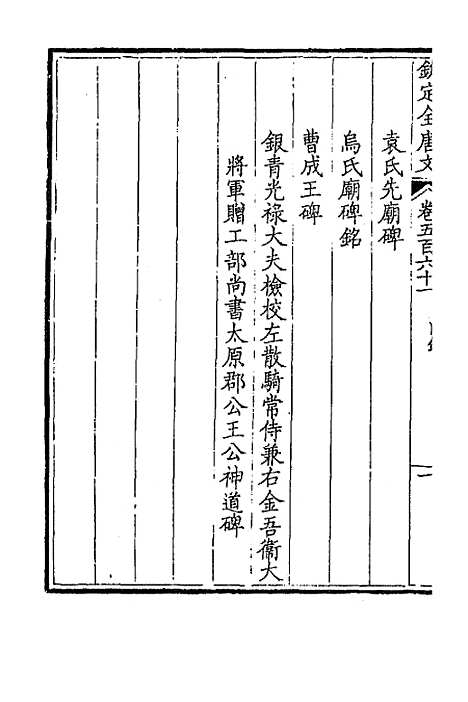 欽定全唐文 卷五百六十一 目錄 一
袁氏先廟碑
烏氏廟碑銘
曹成王碑
銀青光祿大夫檢校左散騎常侍兼右金吾衞大
將軍贈工部尚書太原郡公王公神道碑